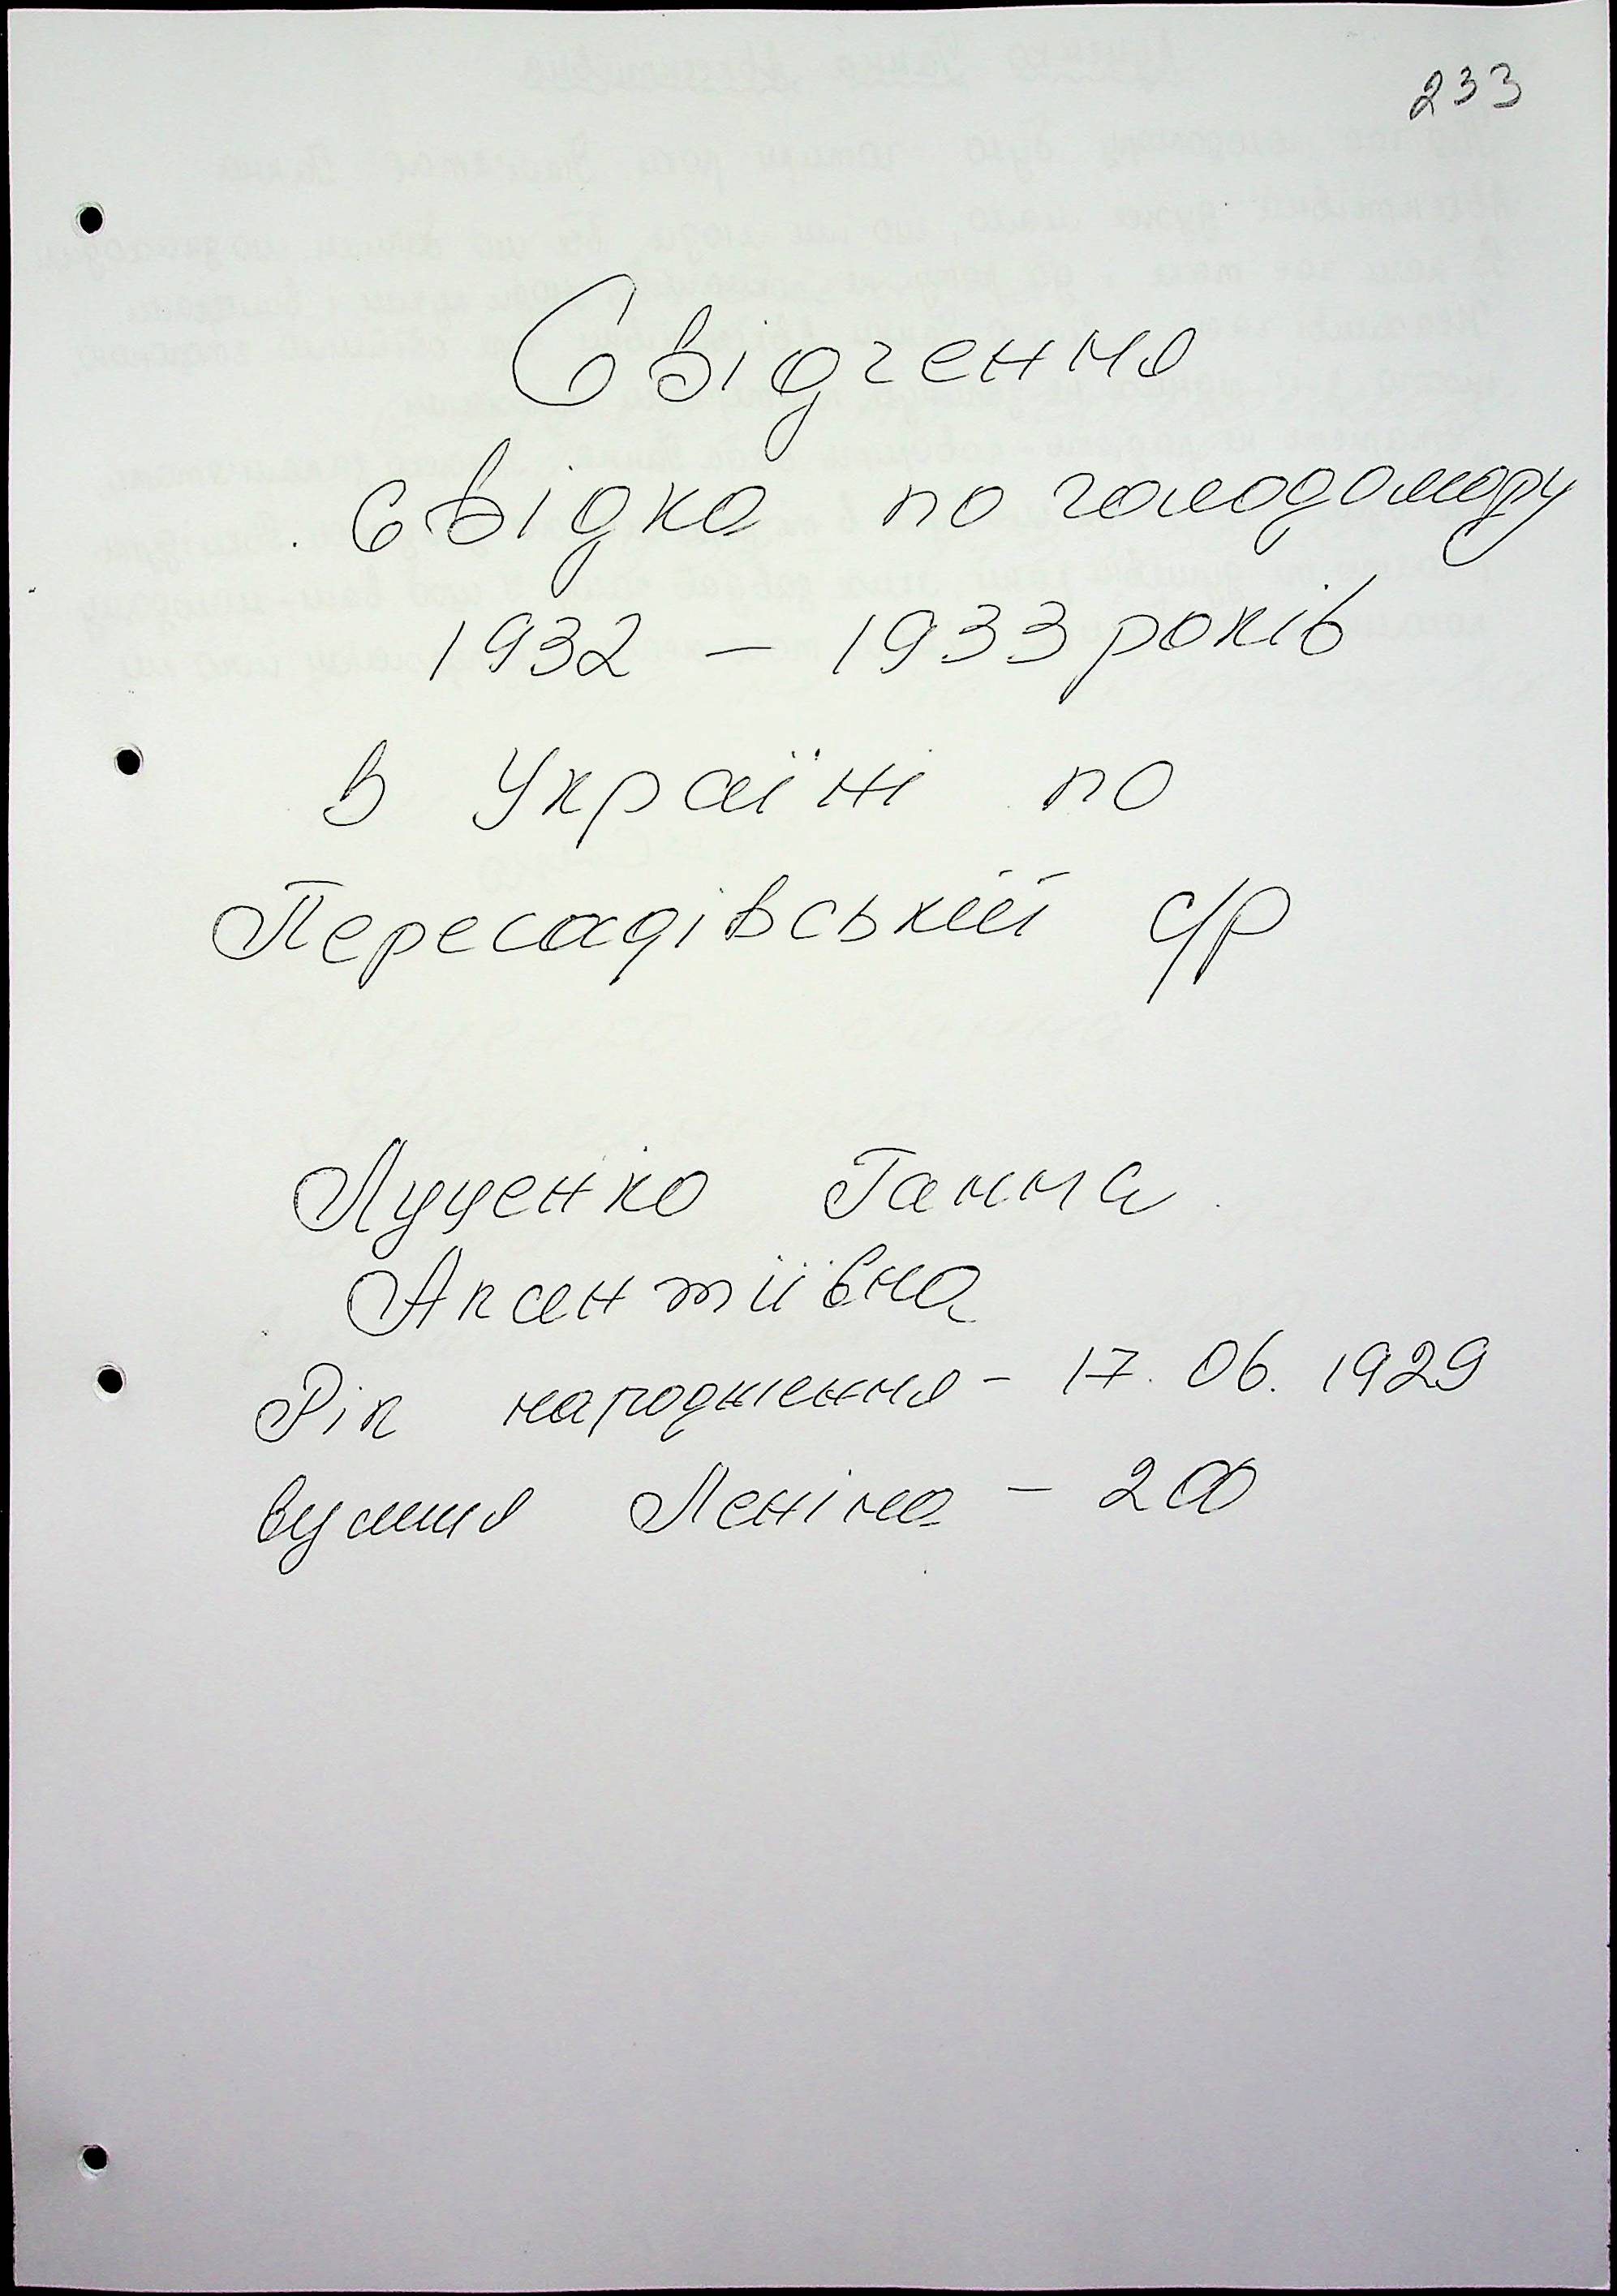 233
Свідчення
свідка по голодомору
1932 – 1933 років
в Україні по
Пересадівській с/р
Луценко Ганна
Аксентіївна
Рік народження – 17. 06. 1929
вулиця Леніна – 200